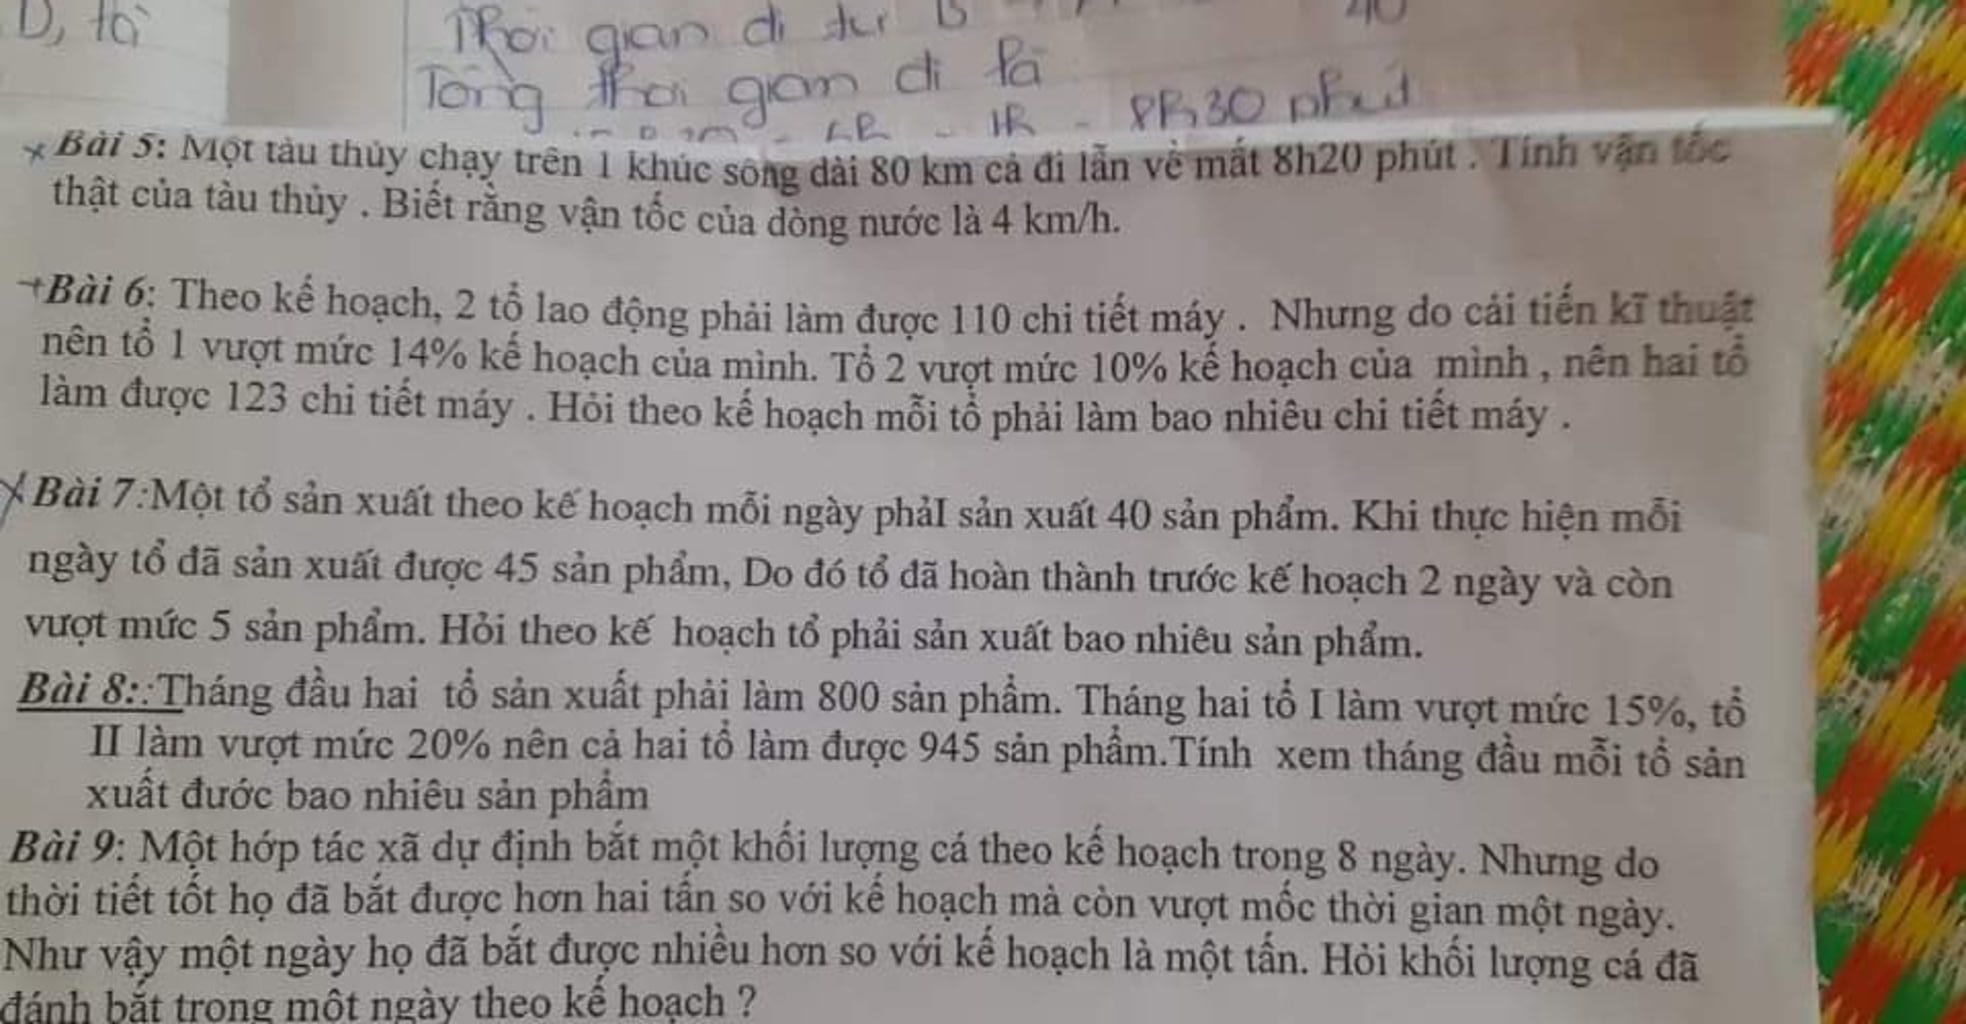 D, tà
Thời gian đi từ B
40
Tổng thời gian đi là
8h30 phút
Bài 5: Một tàu thủy chạy trên 1 khúc sông dài 80 km cả đi lẫn về mất 8h20 phút . Tính vận tốc
thật của tàu thủy . Biết rằng vận tốc của dòng nước là 4 km/h.
Bài 6: Theo kế hoạch, 2 tổ lao động phải làm được 110 chi tiết máy . Nhưng do cải tiến kĩ thuật
nên tổ 1 vượt mức 14% kế hoạch của mình. Tổ 2 vượt mức 10% kế hoạch của mình , nên hai tổ
làm được 123 chi tiết máy . Hỏi theo kế hoạch mỗi tổ phải làm bao nhiêu chi tiết máy .
Bài 7:Một tổ sản xuất theo kế hoạch mỗi ngày phảI sản xuất 40 sản phẩm. Khi thực hiện mỗi
ngày tổ đã sản xuất được 45 sản phẩm, Do đó tổ đã hoàn thành trước kế hoạch 2 ngày và còn
vượt mức 5 sản phẩm. Hỏi theo kế hoạch tổ phải sản xuất bao nhiêu sản phẩm.
Bài 8::Tháng đầu hai tổ sản xuất phải làm 800 sản phẩm. Tháng hai tổ I làm vượt mức 15%, tổ
II làm vượt mức 20% nên cả hai tổ làm được 945 sản phẩm.Tính xem tháng đầu mỗi tổ sản
xuất đước bao nhiêu sản phẩm
Bài 9: Một hớp tác xã dự định bắt một khối lượng cá theo kế hoạch trong 8 ngày. Nhưng do
thời tiết tốt họ đã bắt được hơn hai tấn so với kế hoạch mà còn vượt mốc thời gian một ngày.
Như vậy một ngày họ đã bắt được nhiều hơn so với kế hoạch là một tấn. Hỏi khối lượng cá đã
đánh bắt trong một ngày theo kế hoạch ?